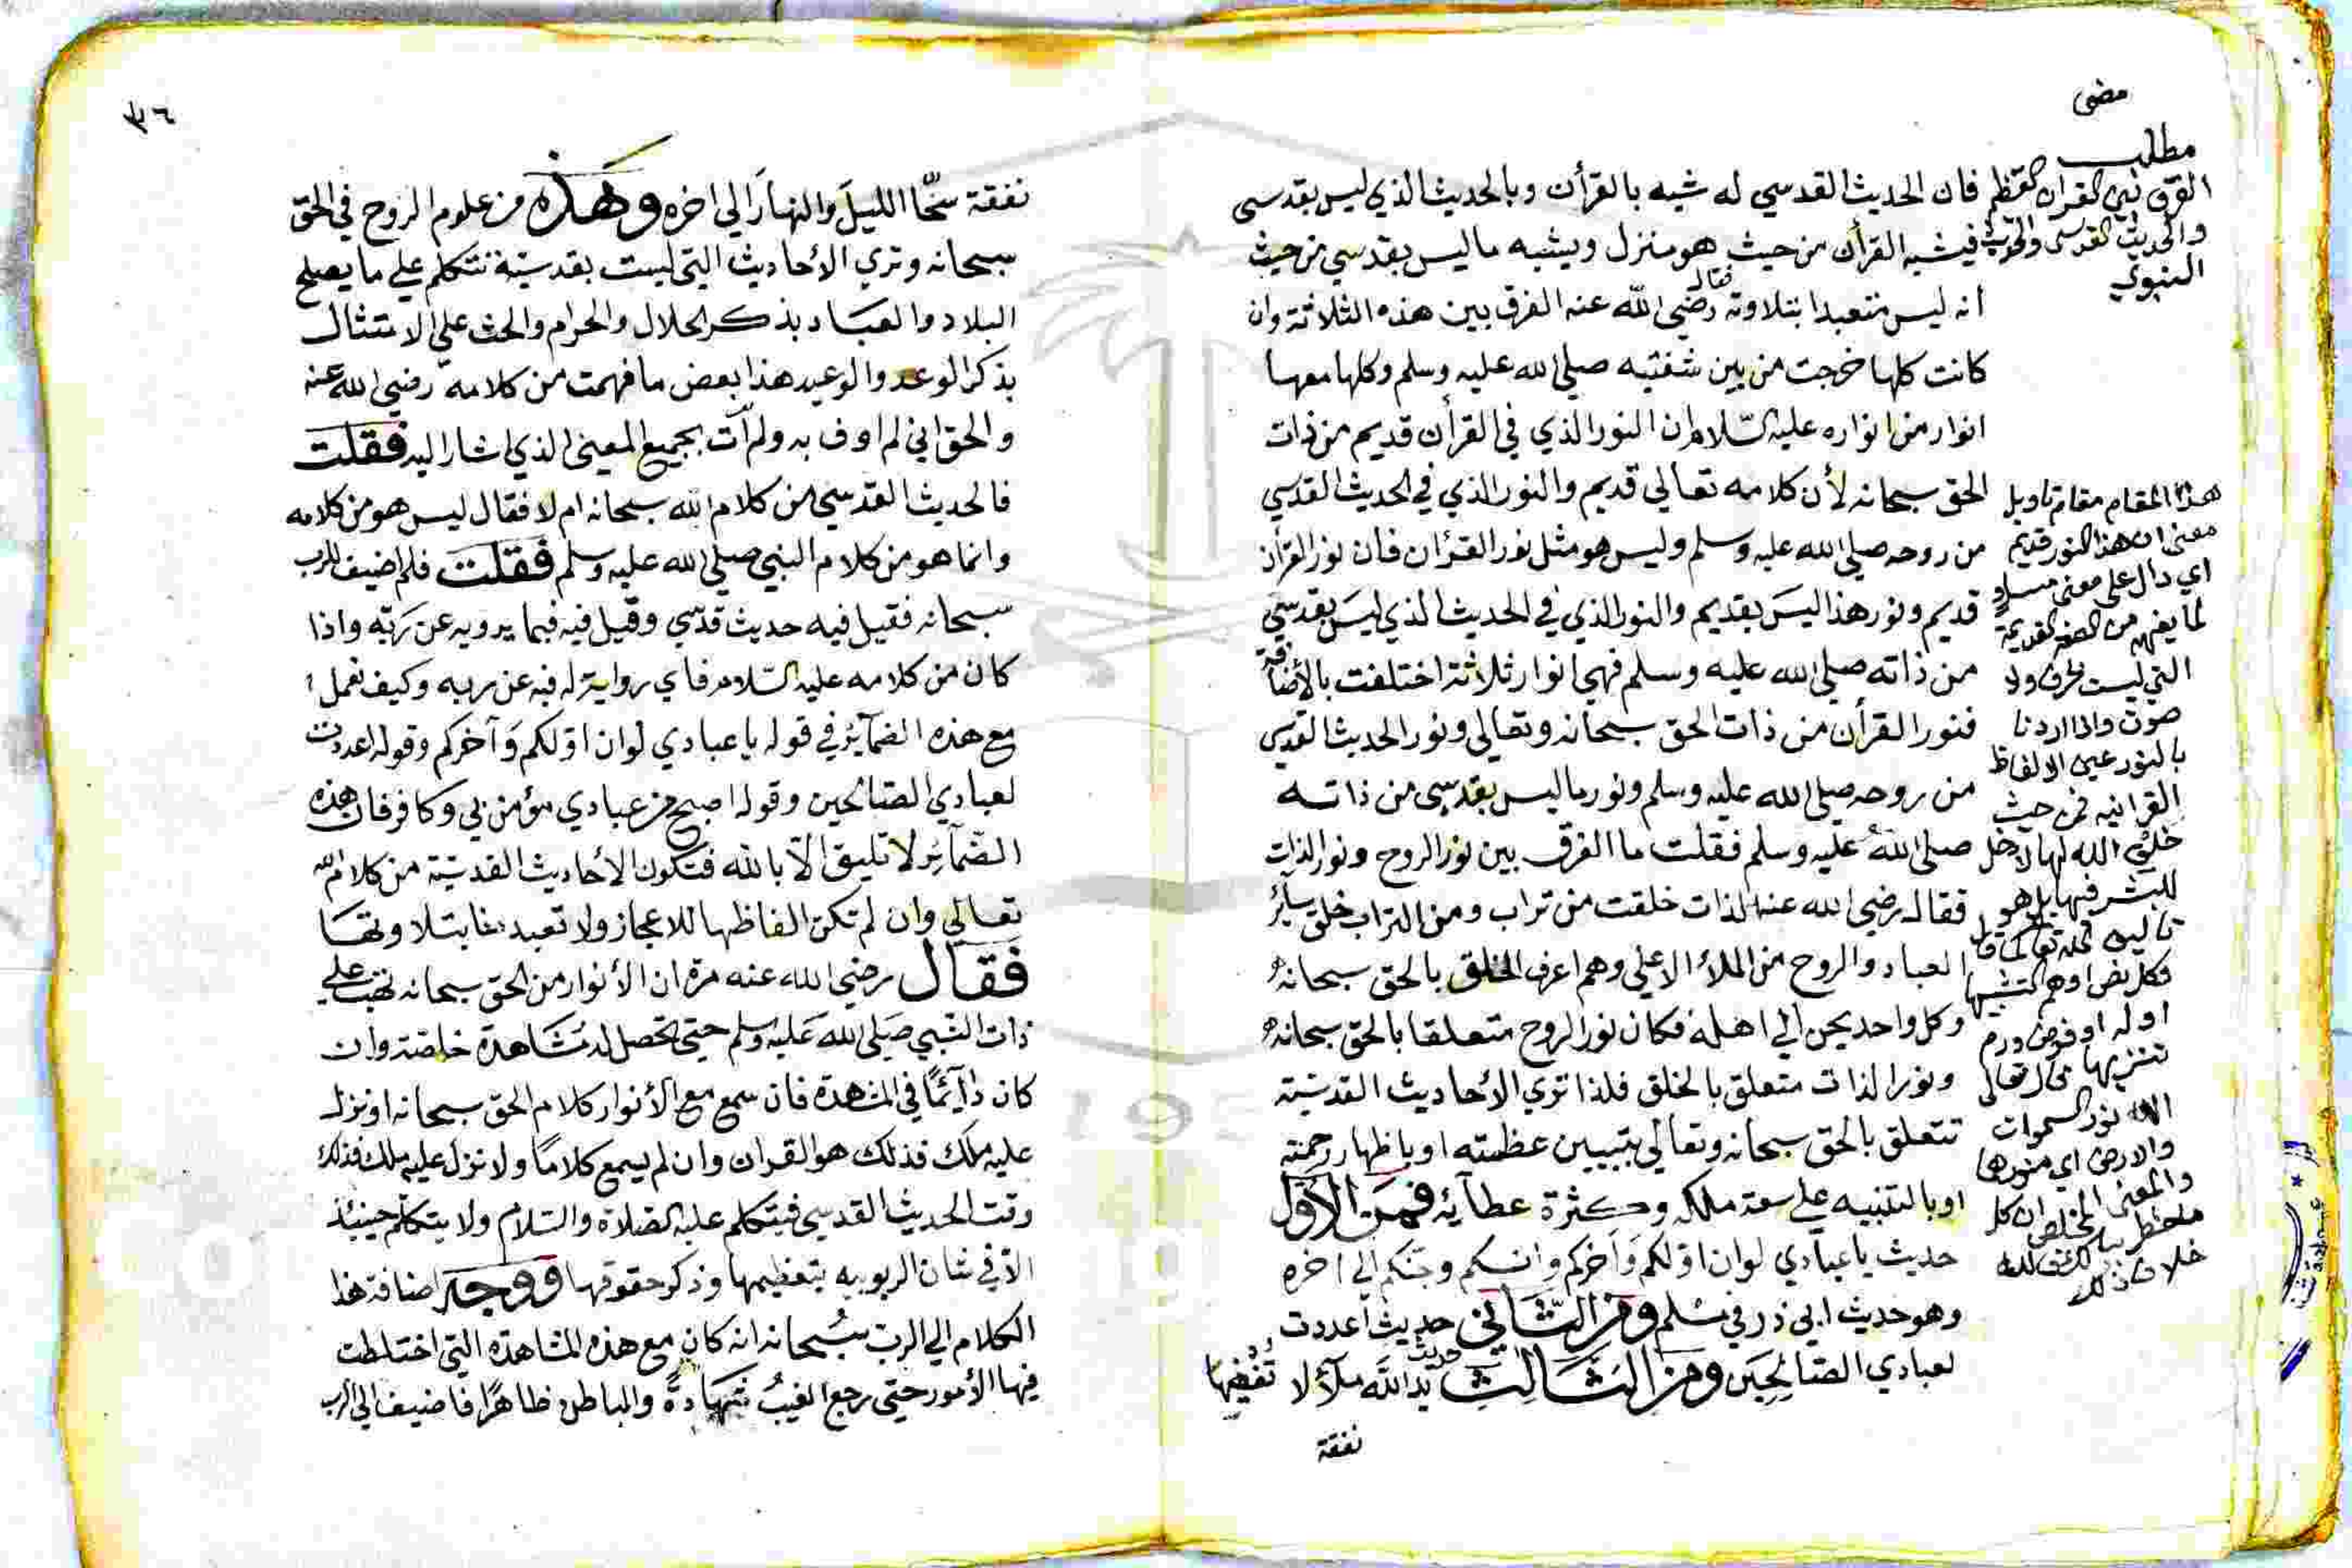 مضى
مطلب
الفرق بين القران العظيم
والحديث القدسي والحديث
النبوي
فان الحديث القدسي له شبه بالقرأن وبالحديث الذي ليس بقدسى
فيشبه القرأن من حيث هو منزل ويشبه ما ليس بقدسي من حيث
أنه ليس متعبدا بتلاوته فقال رضي الله عنه الفرق بين هذه الثلاثة وان
كانت كلها خرجت من بين شفتيه صلى الله عليه وسلم وكلها معها
انوار من انواره عليه السّلام ان النور الذي في القرأن قديم من ذات
الحق سبحانه لأن كلامه تعالي قديم والنور الذي في الحديث القدسي
من روحه صلى الله عليه وسلم وليس هو مثل نور القرٔان فان نور القرأن
قديم ونور هذا ليسَ بقديم والنور الذي في الحديث الذي ليسَ بقدسي
من ذاته صلى الله عليه وسلم فهي انوار ثلاثة اختلفت بالأضافة
فنور القرأن من ذات الحق سبحانه وتعالي ونور الحديث القدسي
من روحه صلى الله عليه وسلم ونور ما ليس بقدسى من ذاته
صلى اللهُ عليه وسلم فقلت ما الفرق بين نور الروح ونور الذات
فقال رضي الله عنه الذات خلقت من تراب ومن التراب خلق سائر
العباد والروح من الملأ الأعلي وهم اعرف الخلق بالحق سبحانه
وكل واحد يحن الي اهله فكان نور الروح متعلقا بالحق سبحانه
ونور الذات متعلق بالخلق فلذا تري الأحاديث القدسيّة
تتعلق بالحق سبحانه وتعالي بتبيين عظمته او باظهار رحمته
او بالتنبيه علي سعة ملكه وكثرة عطآئه فمن الأول
حديث يا عبادي لو ان اوّلكم وَآخركم وانسكم وجنّكم الي اخره
وهو حديث ابي ذر في مسلم ومن الثّاني حديث أعددت
لعبادي الصّالِحِينَ ومن الثالث حديث يد اللهَ ملأى لا تُغيضُها
نفقة
هذا المقام مقام تاويل
معنى ان هذا النور قديم
اي دال على معنى مساوٍ
لما يفهم من الصفة القديمة
التي ليست بحرف ولا
صوت واذا اردنا
بالنور عين الالفاظ
القرانيه فمن حيث
خلق الله لها لا دخل
للبشر فيها بل هو
تاليف لله تعالى كما قال
وكل نص اوهم التشبيها
اوله او فوض ورم
تنزيها قال تعالى
الله نور السموات
والارض اي منورها
والمعنى الملخص ان كل
ما خطر ببالك فالله
خلاف ذلك
٣٦
نفقة سَحّا الليلَ والنهارَ الي اخره وهذه من علوم الروح في الحق
سبحانه وتري الأحاديث التي ليست بقدسيّة تتكلم علي ما يصلح
البلاد والعباد بذكر الحلال والحرام والحث على الامتثال
بذكر الوعد والوعيد هذا بعض ما فهمت من كلامه رضي الله عنه
والحق اني لم اوف به ولم آت بجميع المعنى الذي اشار اليه فقلت
فالحديث القدسي من كلام الله سبحانه ام لا فقال ليس هو من كلامه
وانما هو من كلام النبي صلى الله عليه وسلم فقلت فلم اضيف للرب
سبحانه فقيل فيه حديث قدّسي وقيل فيه فيما يرويه عن رَبّه واذا
كان من كلامه عليه السّلام فاي رواية له فيه عن ربه وكيف نعمل
مع هذه الضمآئر في قوله يا عبادي لو ان اوّلكم وَآخركم وقوله اعددت
لعبادي الصّالحين وقوله اصبح من عبادي مؤمن بي وكافر فان هذه
الضمآئر لا تليق الّا بالله فتكون الأحاديث القدسيّة من كلام الله
تعالي وان لم تكن الفاظها للاعجاز ولا تعبدنا بتلاوتها
فقال رضي الله عنه مرة ان الأنوار من الحق سبحانه تهب علي
ذات النّبي صَلى اللهَ عَليه وسلم حتى تحصل له مشاهدة خاصّة وان
كان دَآئمًا في المشاهدة فان سمع مع الأنوار كلام الحق سبحانه او نزل
عليه ملَك فذلك هو القران وان لم يسمع كلامًا ولا نزل عليه ملك فذلك
وقت الحديث القدسي فيتكلم عليه الصّلاة والسّلام ولا يتكلّم حينئذ
الّا في شان الربوبيه بتعظيمها وذكر حقوقها ووجه اضافة هذا
الكلام الي الرب سُبحانه انه كان مع هذه المشاهدة التي اختلطت
فيها الأمور حتى رجع الغيبُ شَهادةً والباطن ظاهرًا فاضيف الي الرب